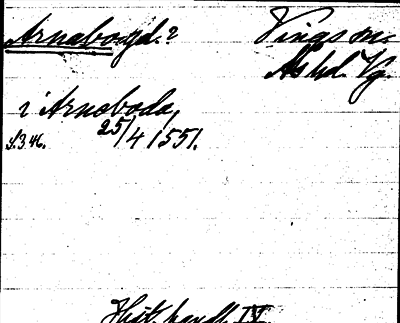 Arnaborgd.? Vings sn.
Ås hd. Vg.
i Arnoboda,
25/4 1551.
s. 346.
Hist. handl. IV.